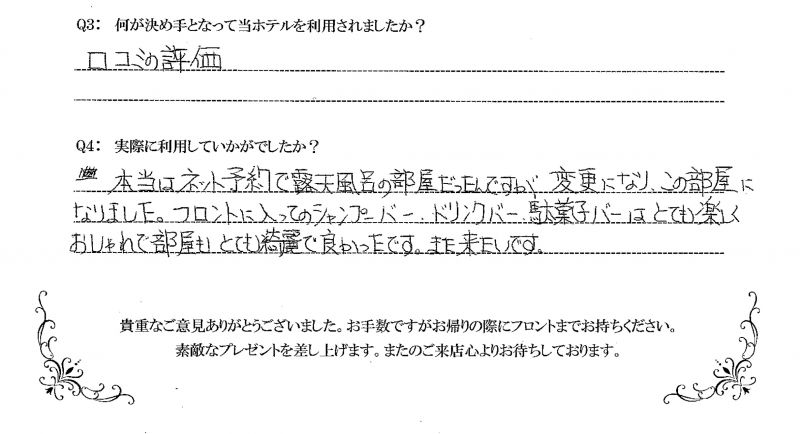 Q3： 何が決め手となって当ホテルを利用されましたか？
口コミの評価
Q4： 実際に利用していかがでしたか？
本当はネット予約で露天風呂の部屋だったんですが、変更になり、この部屋に
なりました。フロントに入ってのシャンプーバー、ドリンクバー、駄菓子バーはとても楽しく
おしゃれで部屋もとても綺麗で良かったです。また来たいです。
貴重なご意見ありがとうございました。お手数ですがお帰りの際にフロントまでお持ちください。
素敵なプレゼントを差し上げます。またのご来店心よりお待ちしております。